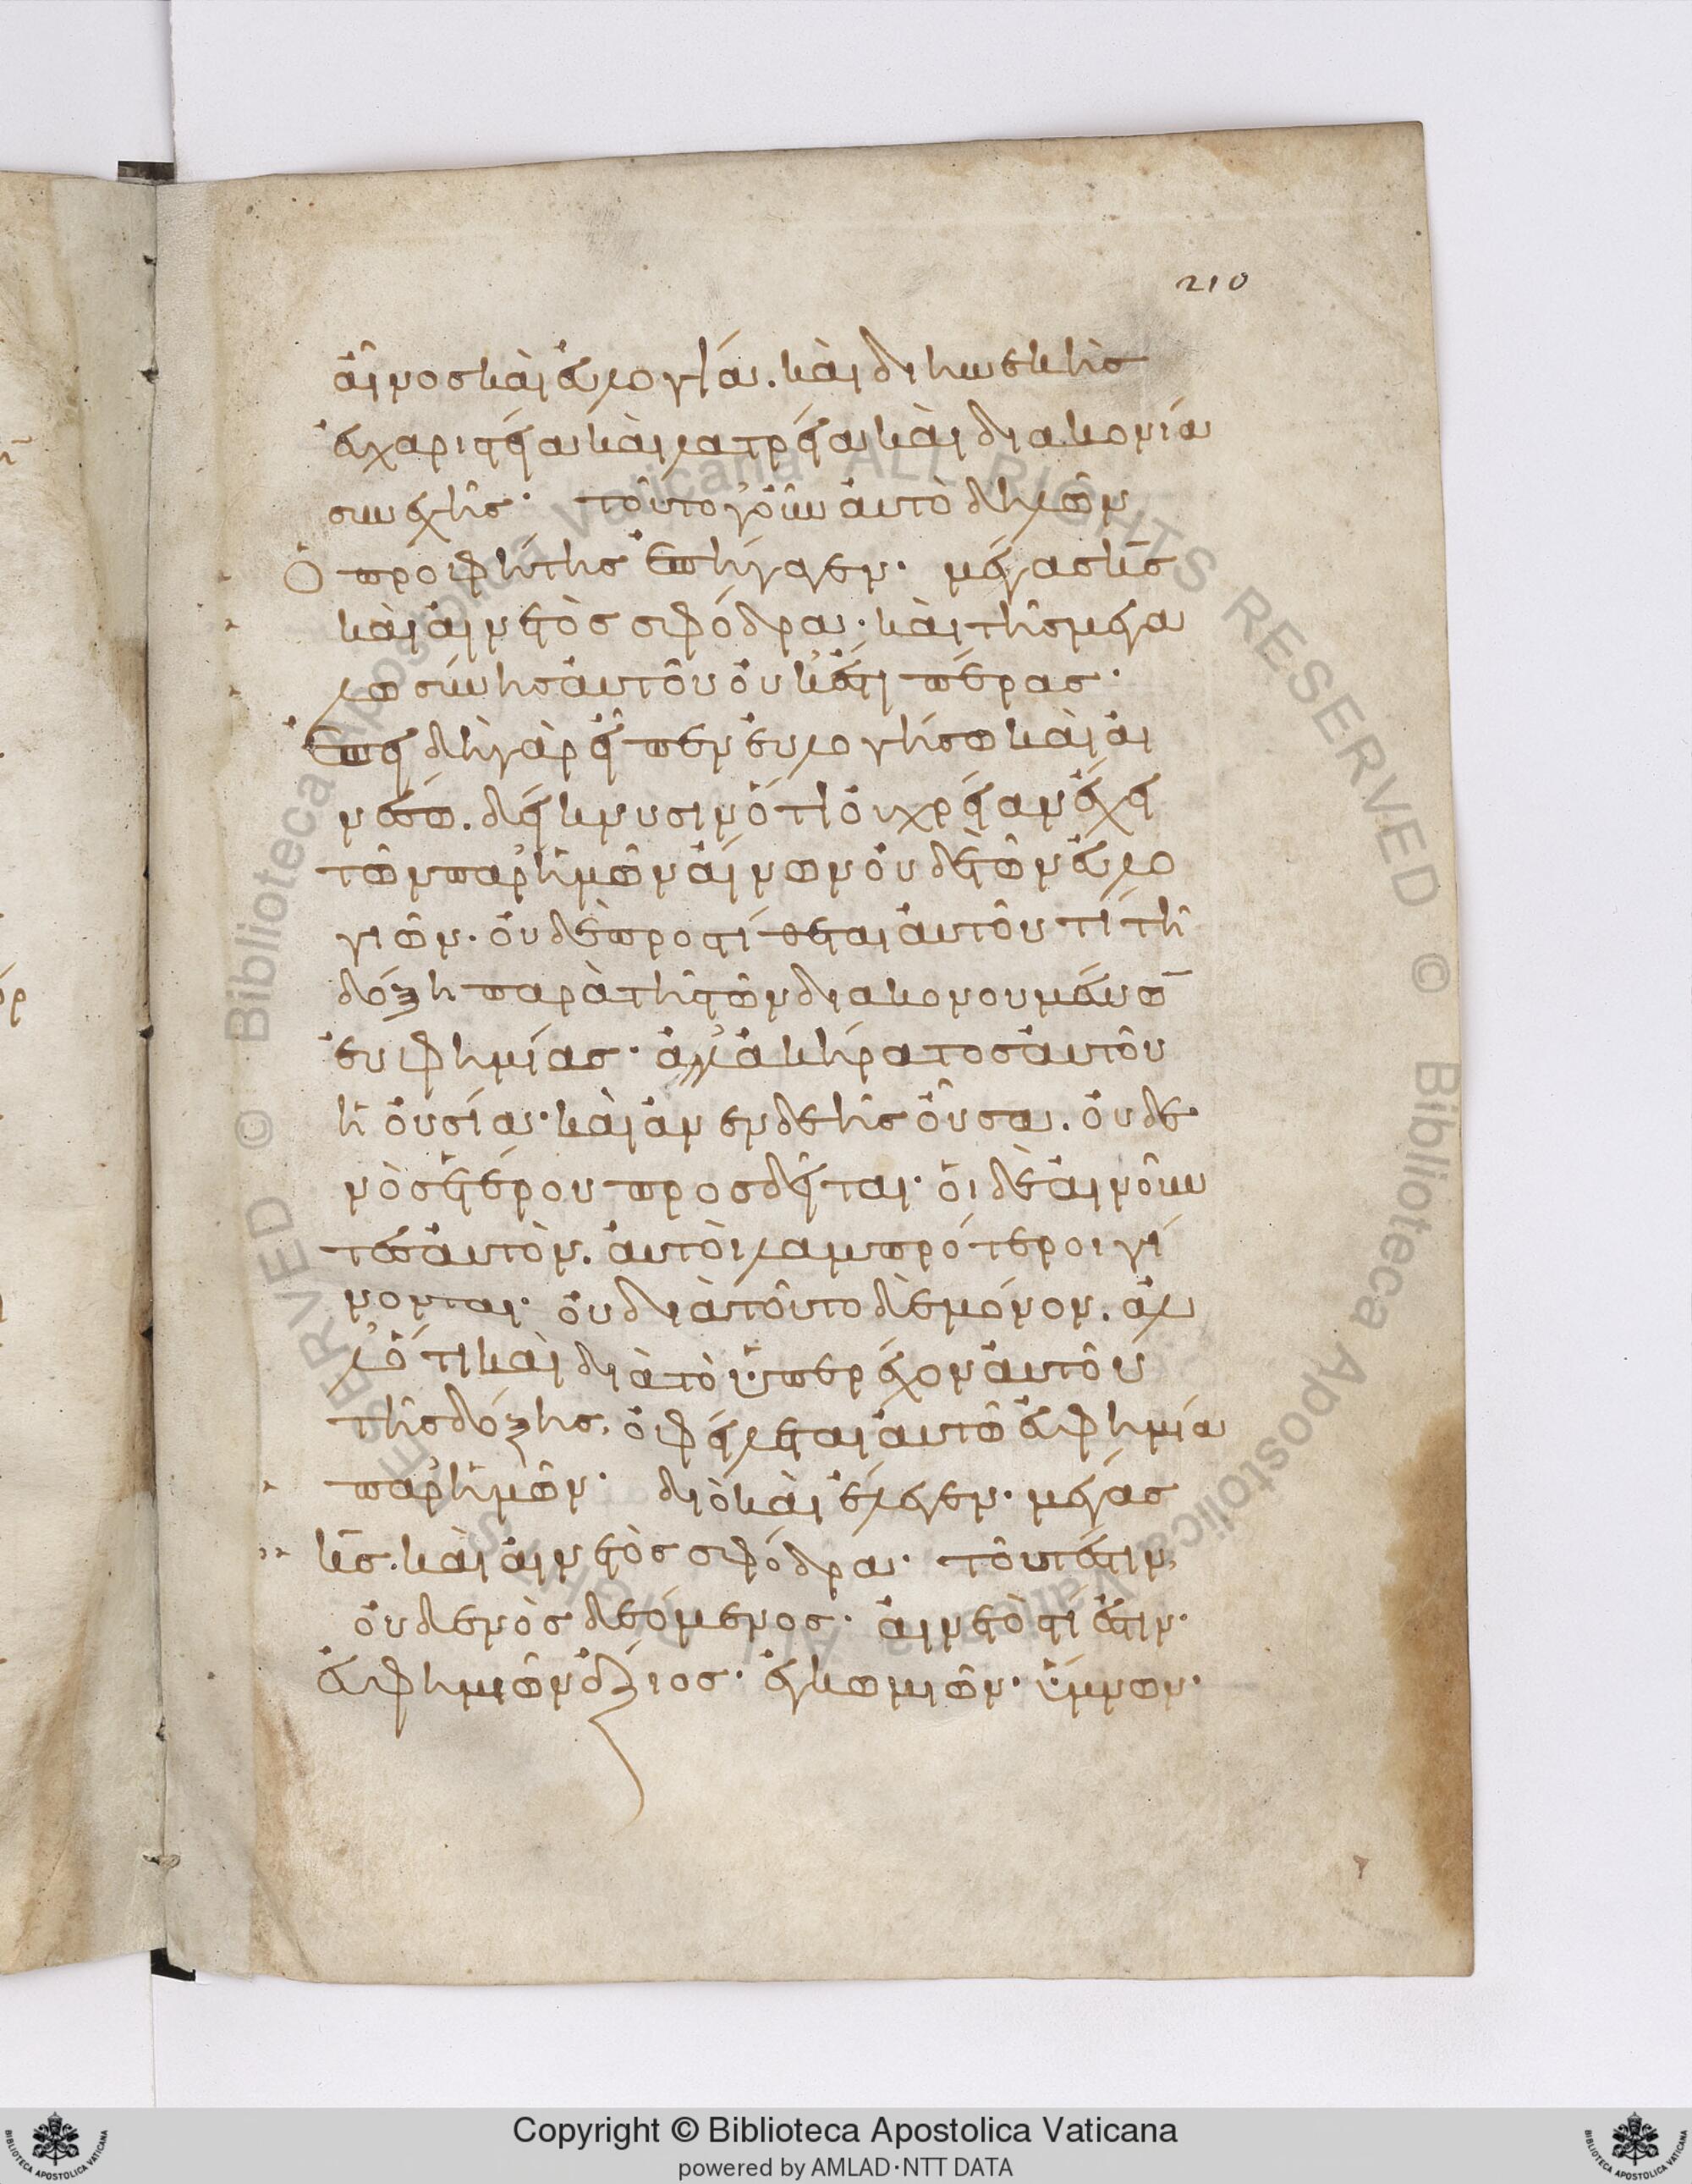 210
αἶνος καὶ εὐλογία. καὶ διηνεκὴς
εὐχαριστεία καὶ λατρεία καὶ διακονία
συνεχῆς· τοῦτο γοῦν αὐτὸ δηλῶν
ὁ προφήτης ἐπήγαγεν· μέγας κ̅ς̅
καὶ αἰνετὸς σφόδρα· καὶ τῆς μεγα
λωσύνης αὐτοῦ οὐκ ἔστι πέρας·
ἐπειδὴ γὰρ εἶπεν εὐλογήσω καὶ αἰ
νέσω. δείκνυσιν ὅτι οὐ χρείαν ἔχει
τῶν παρ' ἡμῶν αἴνων οὐδὲ τῶν εὐλο
γιῶν· οὐδὲ προστίθεται αὐτοῦ τί τῆ
δόξη παρὰ τῆς τῶν διακονουμένω̅
εὐφημίας· ἀλλ' ἀκήρατος αὐτοῦ
ἡ οὐσία· καὶ ἀνενδεὴς οὖσα. οὐδε
νὸς ἑτέρου προσδεῖται· οἱ δὲ αἰνοῦν
τες αὐτὸν. αὐτοὶ λαμπρότεροι γί
νονται· οὐ διὰ τοῦτο δὲ μόνον. ἀλ
λ' ὅτι καὶ διὰ τὸ ὑπερέχον αὐτοῦ
τῆς δόξης, ὀφείλεται αὐτῶ εὐφημία
παρ' ἡμῶν· διὸ καὶ ἔλεγεν· μέγας
κ̅ς̅. καὶ αἰνετὸς σφόδρα· τουτέστιν,
οὐδενὸς δεόμενος· αἰνετὸς τί ἐστιν·
εὐφημιῶν ἄξιος· ἐγκωμιῶν· ὕμνων·
Copyright © Biblioteca Apostolica Vaticana
powered by AMLAD·NTT DATA